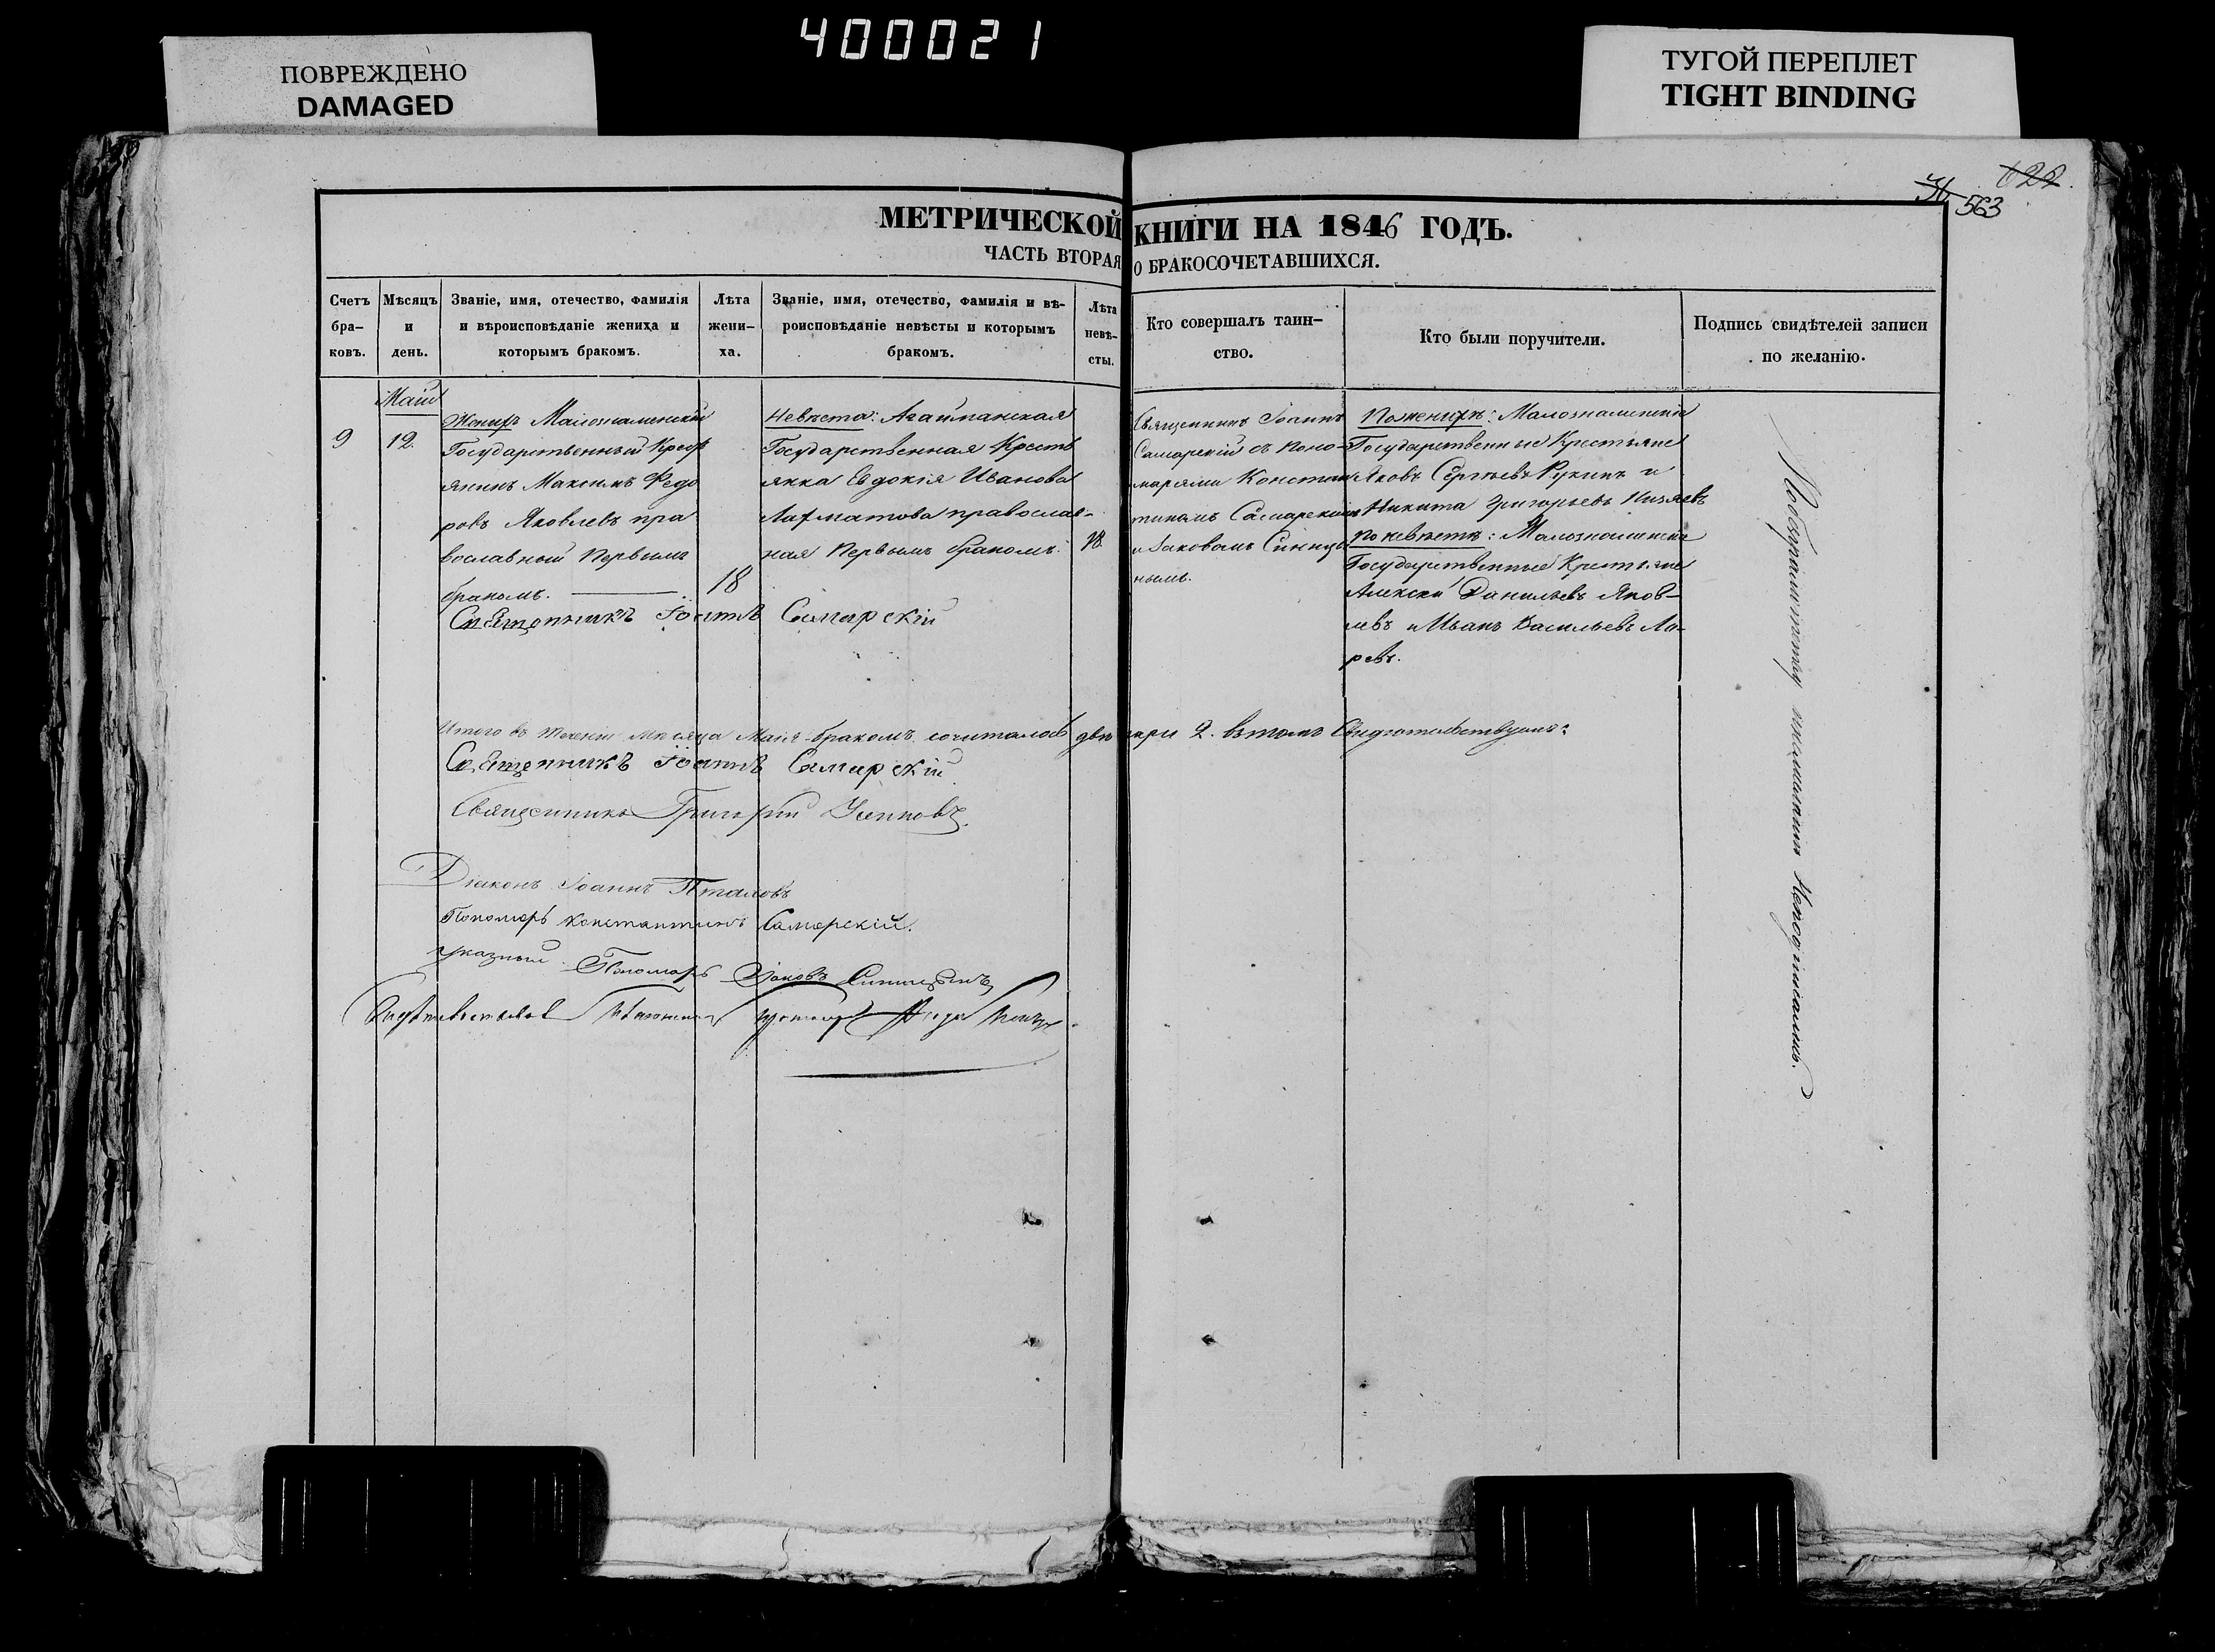 400021
ПОВРЕЖДЕНО
DAMAGED
ТУГОЙ ПЕРЕПЛЕТ
TIGHT BINDING
622.
563
МЕТРИЧЕСКОЙ КНИГИ НА 1846 ГОДЪ.
ЧАСТЬ ВТОРАЯ О БРАКОСОЧЕТАВШИХСЯ.
Счетъ бра-
ковъ.
Мѣсяцъ
и
день.
Званіе, имя, отечество, фамилія
и вѣроисповѣданіе жениха и
которымъ бракомъ.
Лѣта
жени-
ха.
Званіе, имя, отечество, фамилія и вѣ-
роисповѣданіе невѣсты и которымъ
бракомъ.
Лѣта
невѣ-
сты.
Кто совершалъ таин-
ство.
Кто были поручители.
Подпись свидѣтелей записи
по желанію.
9
Маій
12.
Женихъ Малознаменскій
Государственный Крест
янинъ Максимъ Федо
ровъ Яковлевъ пра
вославный первымъ
бракомъ.
18
Невѣста:
Государственная Кресть
янка Евдокія Иванова
Лахматова православ-
ная первымъ бракомъ.
18.
Священникъ Іоаннъ
Самарскій съ Поно-
марями Констан
тиномъ Самарскимъ
и Іаковомъ Синицы
нымъ.
По женихѣ: Малознаменскіе
Государственные Крестьяне
Яковъ Сергѣевъ и
Никита Григорьевъ
По невѣстѣ: Малознаменскіе
Государственные Крестьяне
Алексѣй Данильевъ Яков-
левъ и Иванъ Васильевъ Ла-
ревъ.
Священникъ Іоаннъ Самарскій
Итого въ теченіи мѣсяца Маія бракомъ сочиталось двѣ пари 2. въ томъ свидѣтельствуемъ:
Священникъ Іоаннъ Самарскій
Священникъ Григорій
Діаконъ Іоаннъ
Пономарь Константинъ Самарскій.
указный Пономарь Іаковъ Синицынъ
неподписались.